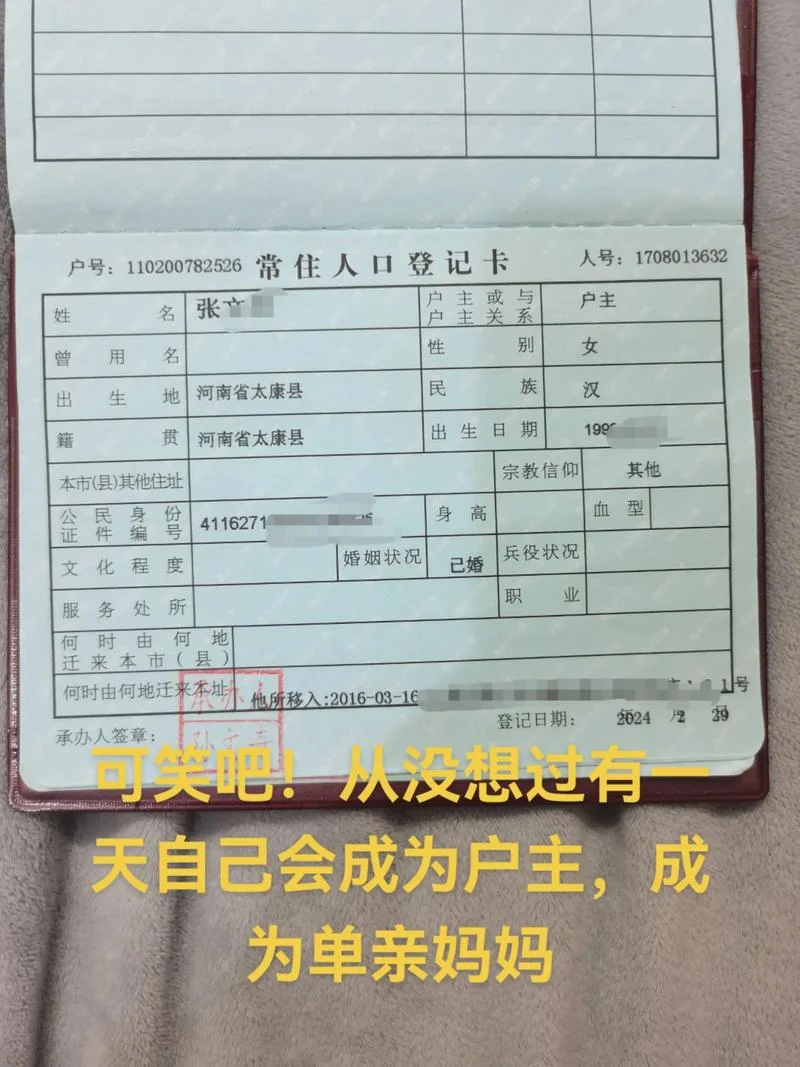 户号：110200782526 常住人口登记卡 人号：1708013632
姓名 张文 户主或与户主关系 户主
曾用名 性别 女
出生地 河南省太康县 民族 汉
籍贯 河南省太康县 出生日期 199
本市(县)其他住址 宗教信仰 其他
公民身份证件编号 4116271 身高 血型
文化程度 婚姻状况 已婚 兵役状况
服务处所 职业
何时由何地迁来本市(县)
何时由何地迁来本址 他所移入:2016-03-16 号
承办人签章： 承办人 登记日期： 2024年2月29日
可笑吧！从没想过有一
天自己会成为户主，成
为单亲妈妈